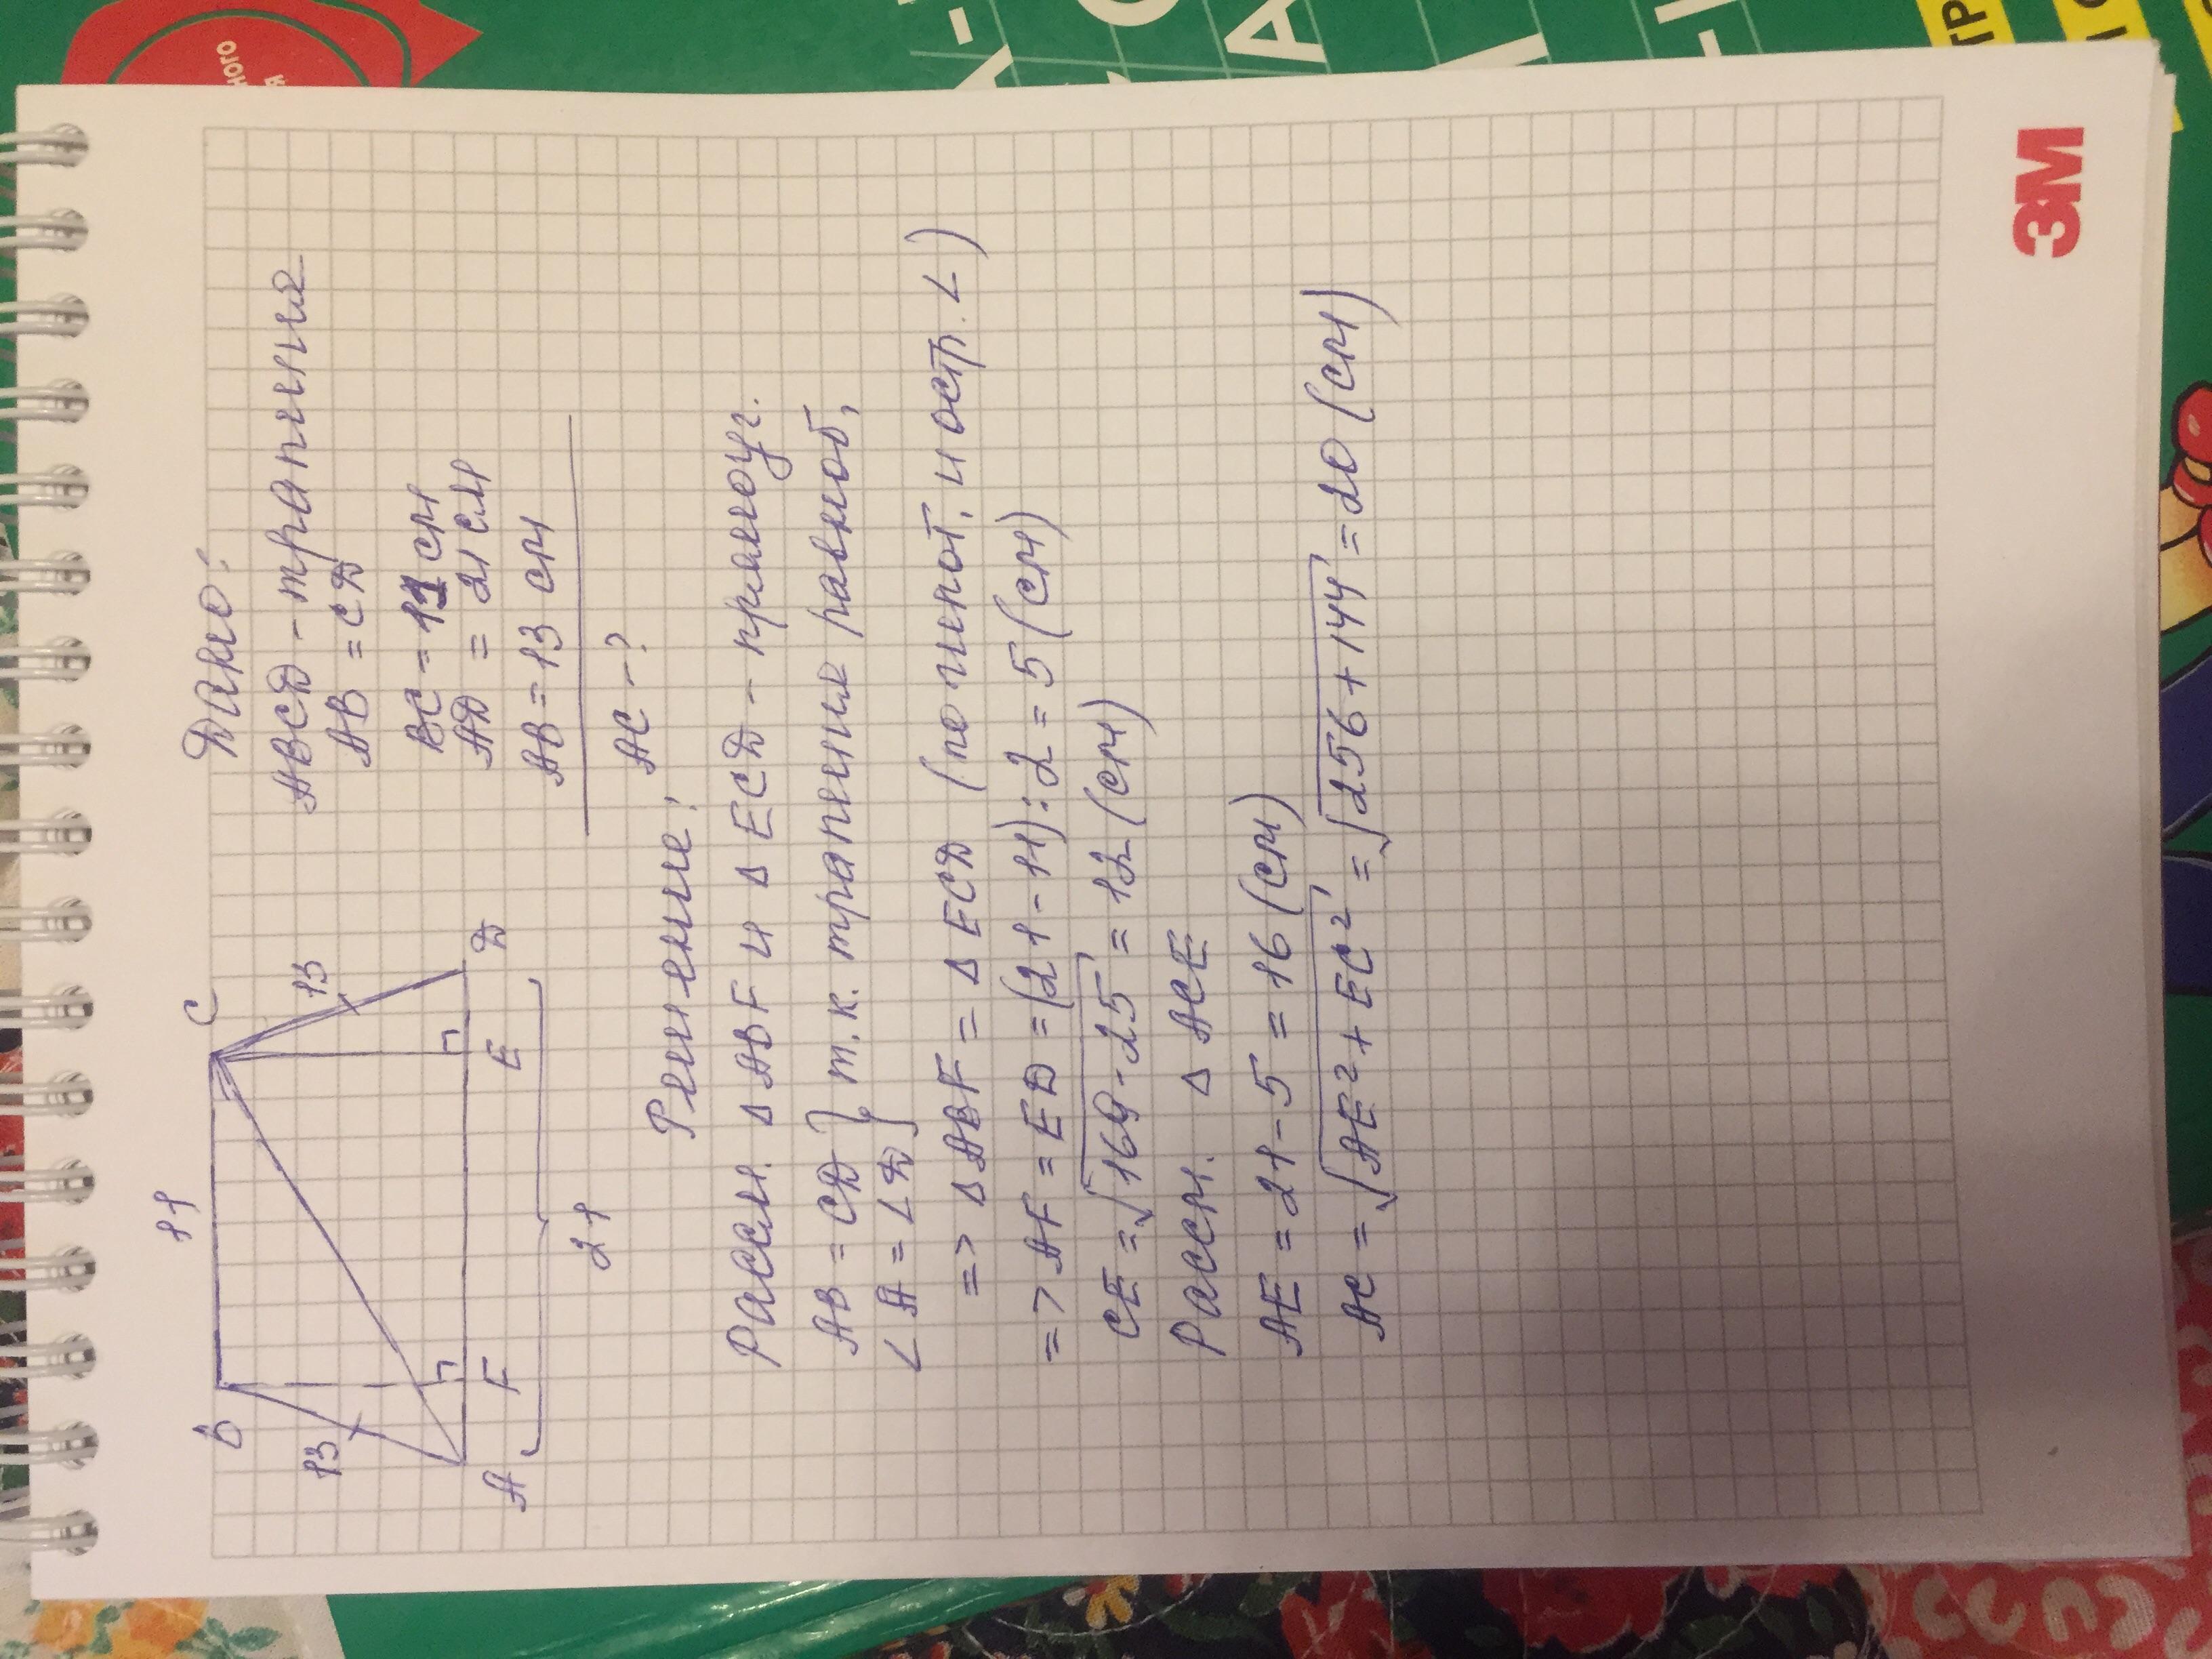 11
B
C
13
13
A
F
E
D
21
Дано:
ABCD - трапеция
AB = CD
BC = 11 см
AD = 21 см
AB = 13 см
AC - ?
Решение:
Рассм. Δ ABF и Δ ECD - прямоуг.
AB = CD } т.к. трапеция равноб,
∠A = ∠D
=> Δ ABF = Δ ECD (по гипот, и остр. ∠)
=> AF = ED = (21-11):2 = 5 (см)
CE = √169-25 = 12 (см)
Рассм. Δ ACE
AE = 21-5 = 16 (см)
AC = √AE² + EC² = √256+144 = 20 (см)
3M